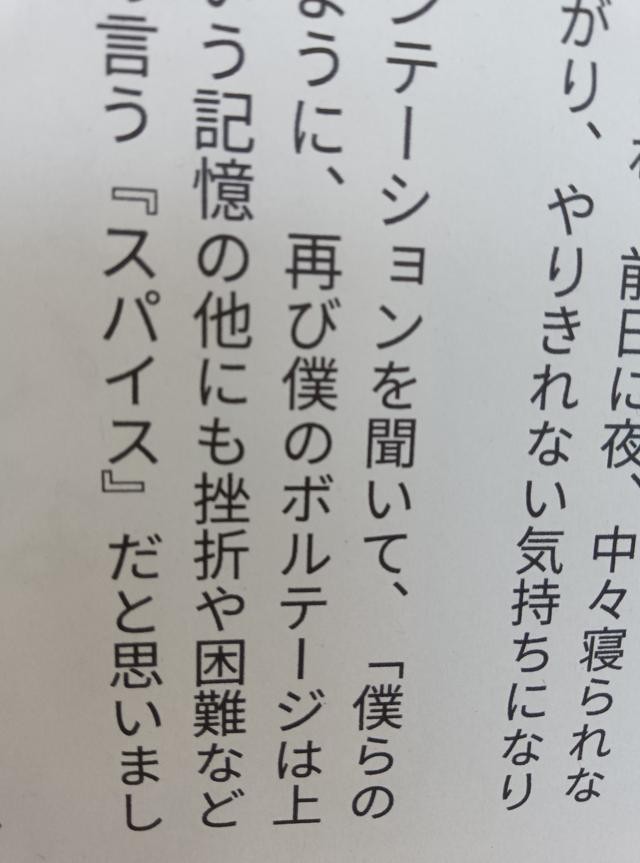 前日に夜、中々寝られな
がり、やりきれない気持ちになり
ンテーションを聞いて、「僕らの
ように、再び僕のボルテージは上
いう記憶の他にも挫折や困難など
言う『スパイス』だと思いまし